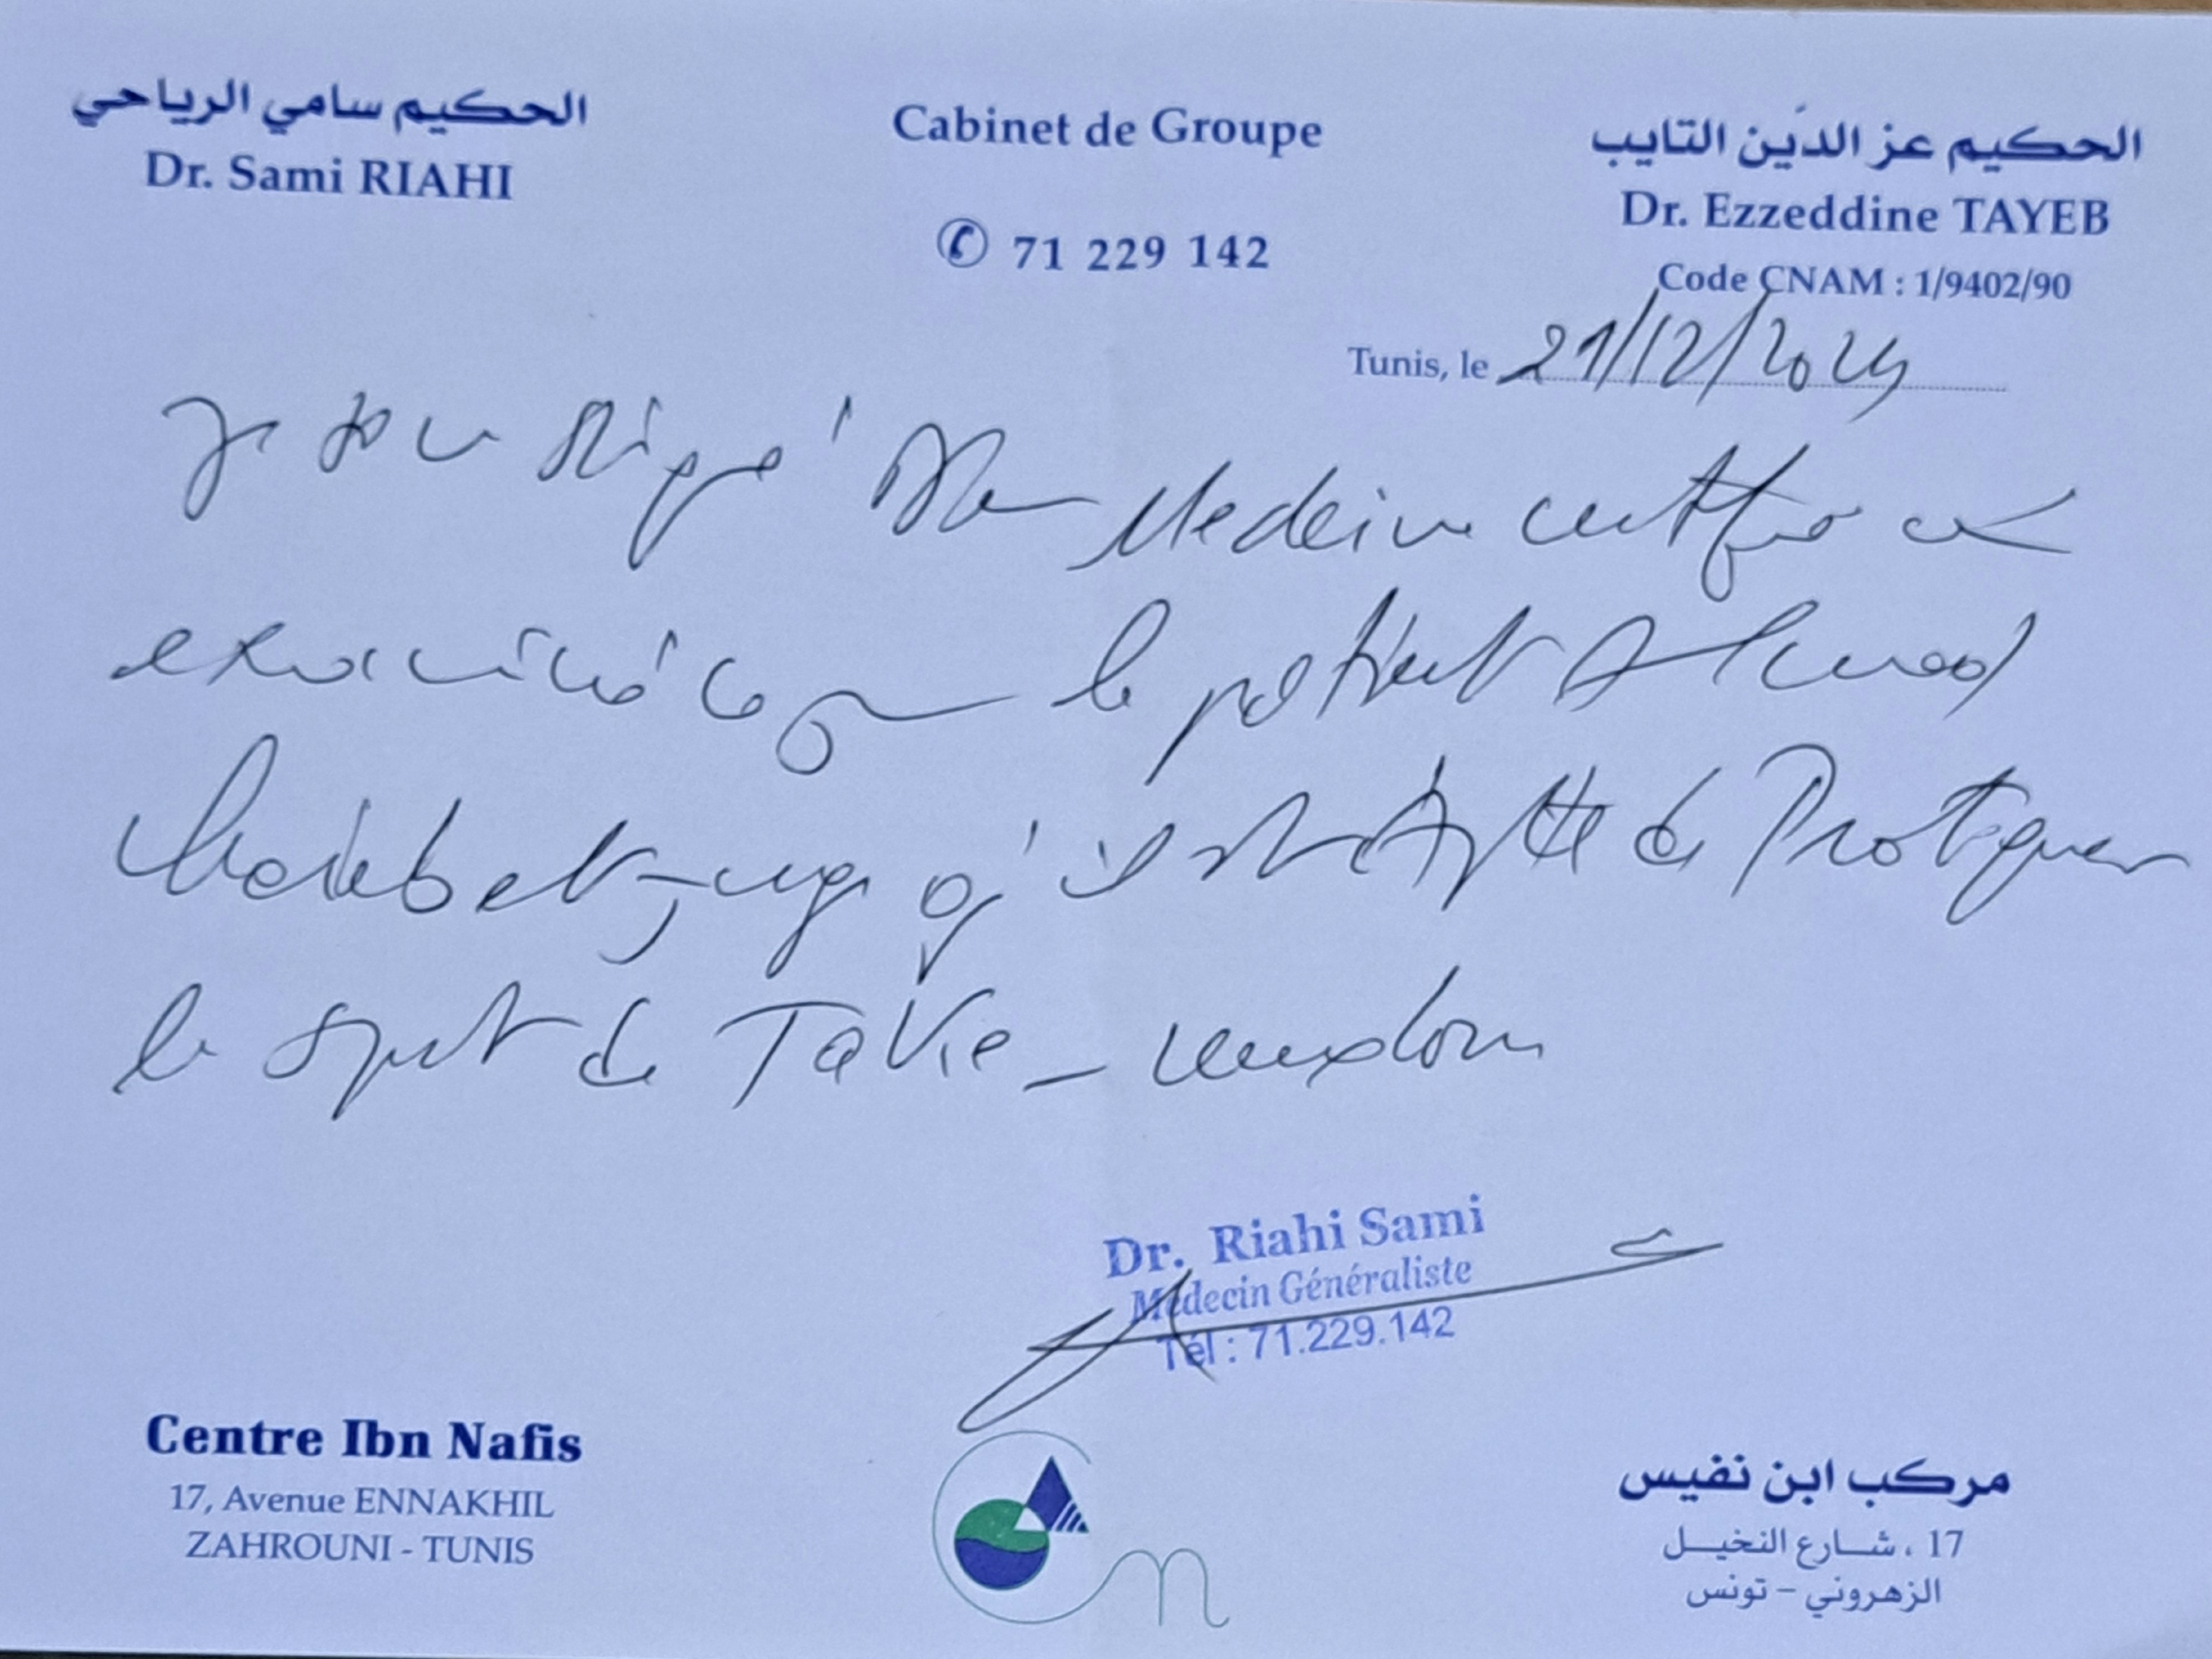 الحكيم سامي الرياحي
Dr. Sami RIAHI
Cabinet de Groupe
✆ 71 229 142
الحكيم عز الدّين التايب
Dr. Ezzeddine TAYEB
Code CNAM : 1/9402/90
Tunis, le 21/12/2024
Je Medecin certifie
examiné ce jour le patient Ahmed
qu'il est apte de Pratiquer
le sport de
Dr. Riahi Sami
Médecin Généraliste
Tél : 71.229.142
Centre Ibn Nafis
17, Avenue ENNAKHIL
ZAHROUNI - TUNIS
مركب ابن نفيس
17 ، شارع النخيل
الزهروني - تونس